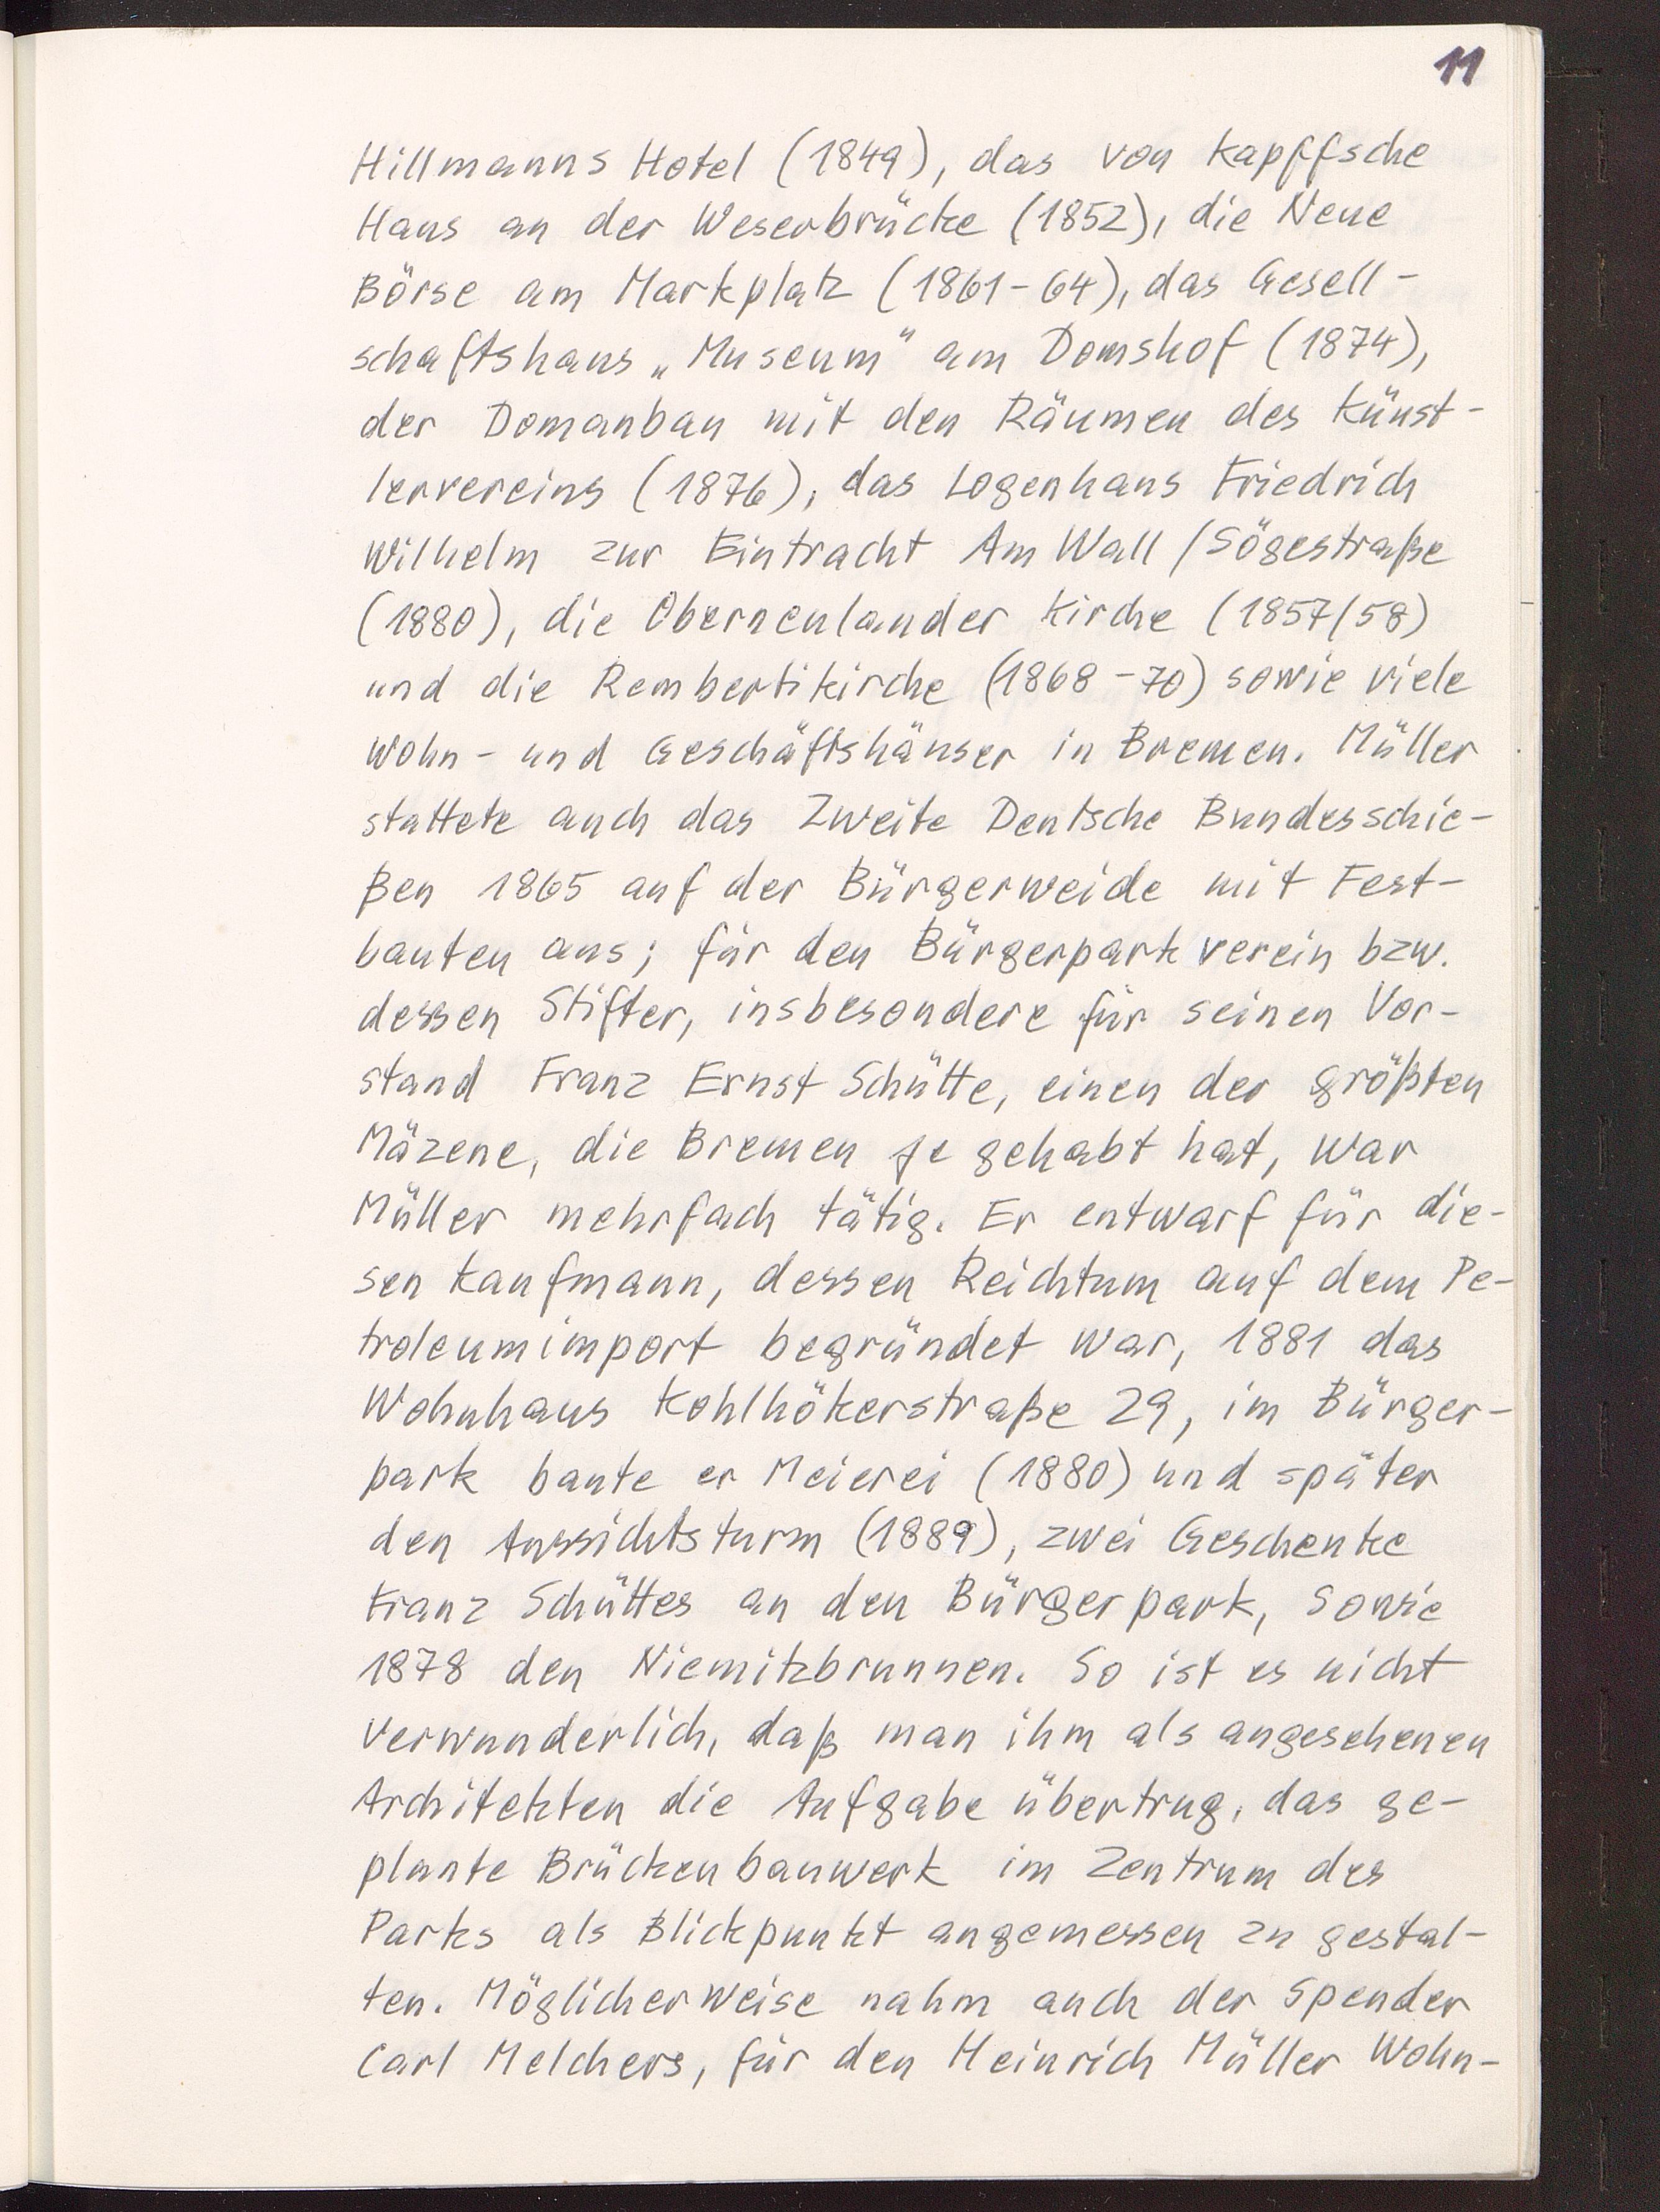 11
Hillmanns Hotel (1849), das von Kapffsche
Haus an der Weserbrücke (1852), die Neue
Börse am Markplatz (1861-64), das Gesell-
schaftshaus „Museum" am Domshof (1874),
der Domanbau mit den Räumen des Künst-
lervereins (1876), das Logenhaus Friedrich
Wilhelm zur Eintracht Am Wall/Sögestraße
(1880), die Oberneulander Kirche (1857/58)
und die Rembertikirche (1868-70) sowie viele
Wohn- und Geschäftshäuser in Bremen. Müller
stattete auch das Zweite Deutsche Bundesschie-
ßen 1865 auf der Bürgerweide mit Fest-
bauten aus; für den Bürgerparkverein bzw.
dessen Stifter, insbesondere für seinen Vor-
stand Franz Ernst Schütte, einen der größten
Mäzene, die Bremen je gehabt hat, war
Müller mehrfach tätig. Er entwarf für die-
sen Kaufmann, dessen Reichtum auf dem Pe-
troleumimport begründet war, 1881 das
Wohnhaus Kohlhökerstraße 29, im Bürger-
park baute er Meierei (1880) und später
den Aussichtsturm (1889), zwei Geschenke
Franz Schüttes an den Bürgerpark, sowie
1878 den Niemitzbrunnen. So ist es nicht
verwunderlich, daß man ihm als angesehenen
Architekten die Aufgabe übertrug, das ge-
plante Brückenbauwerk im Zentrum des
Parks als Blickpunkt angemessen zu gestal-
ten. Möglicherweise nahm auch der Spender
Carl Melchers, für den Heinrich Müller Wohn-